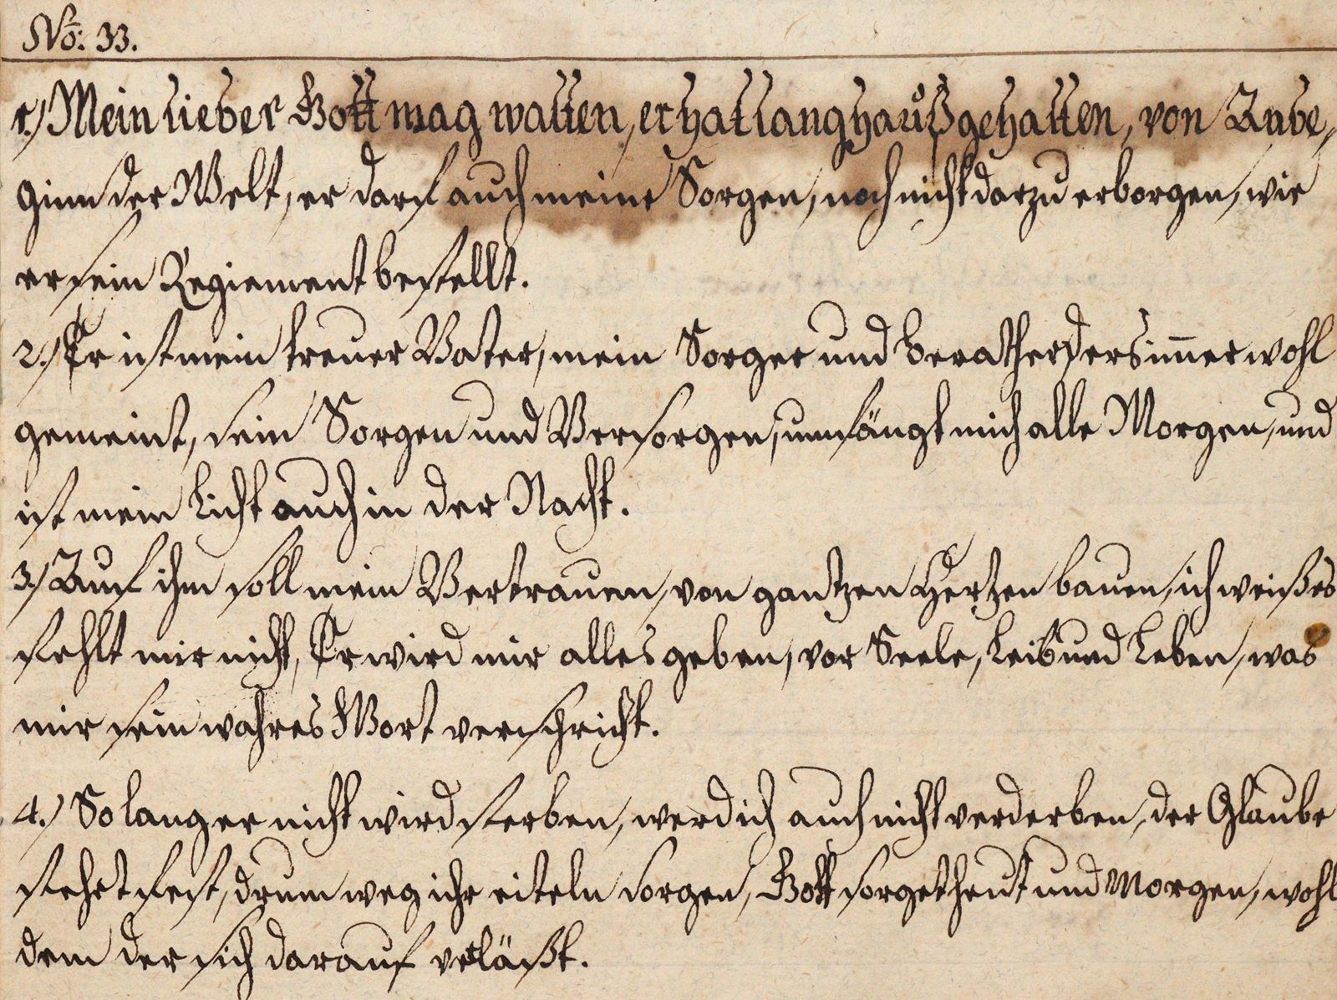 No: 33.
1./ Mein lieber Gott mag walten, er hat lang hauß gehalten, von Anbe,
ginn der Welt, er darf auch meine Sorgen, noch nicht darzu erborgen, wie
er sein Regiement bestellt.
2./ Er ist mein treuer Vater, mein Sorger und berather, ders immer wohl
gemeint, sein Sorgen und Versorgen, umfängt mich alle Morgen, und
ist mein Licht auch in der Nacht.
3./ Auf ihm soll mein Vertrauen, von gantzen Hertzen bauen, ich weiß es
fehlt mir nicht, Er wird mir alles geben, vor Seele, Leib und Leben, was
mir sein wahres Wort verspricht.
4./ So lang er nicht wird sterben, werd ich auch nicht verderben, der Glaube
stehet fest, drum weg ihr eiteln sorgen, Gott sorget heut und Morgen, wohl
dem der sich darauf verläßt.